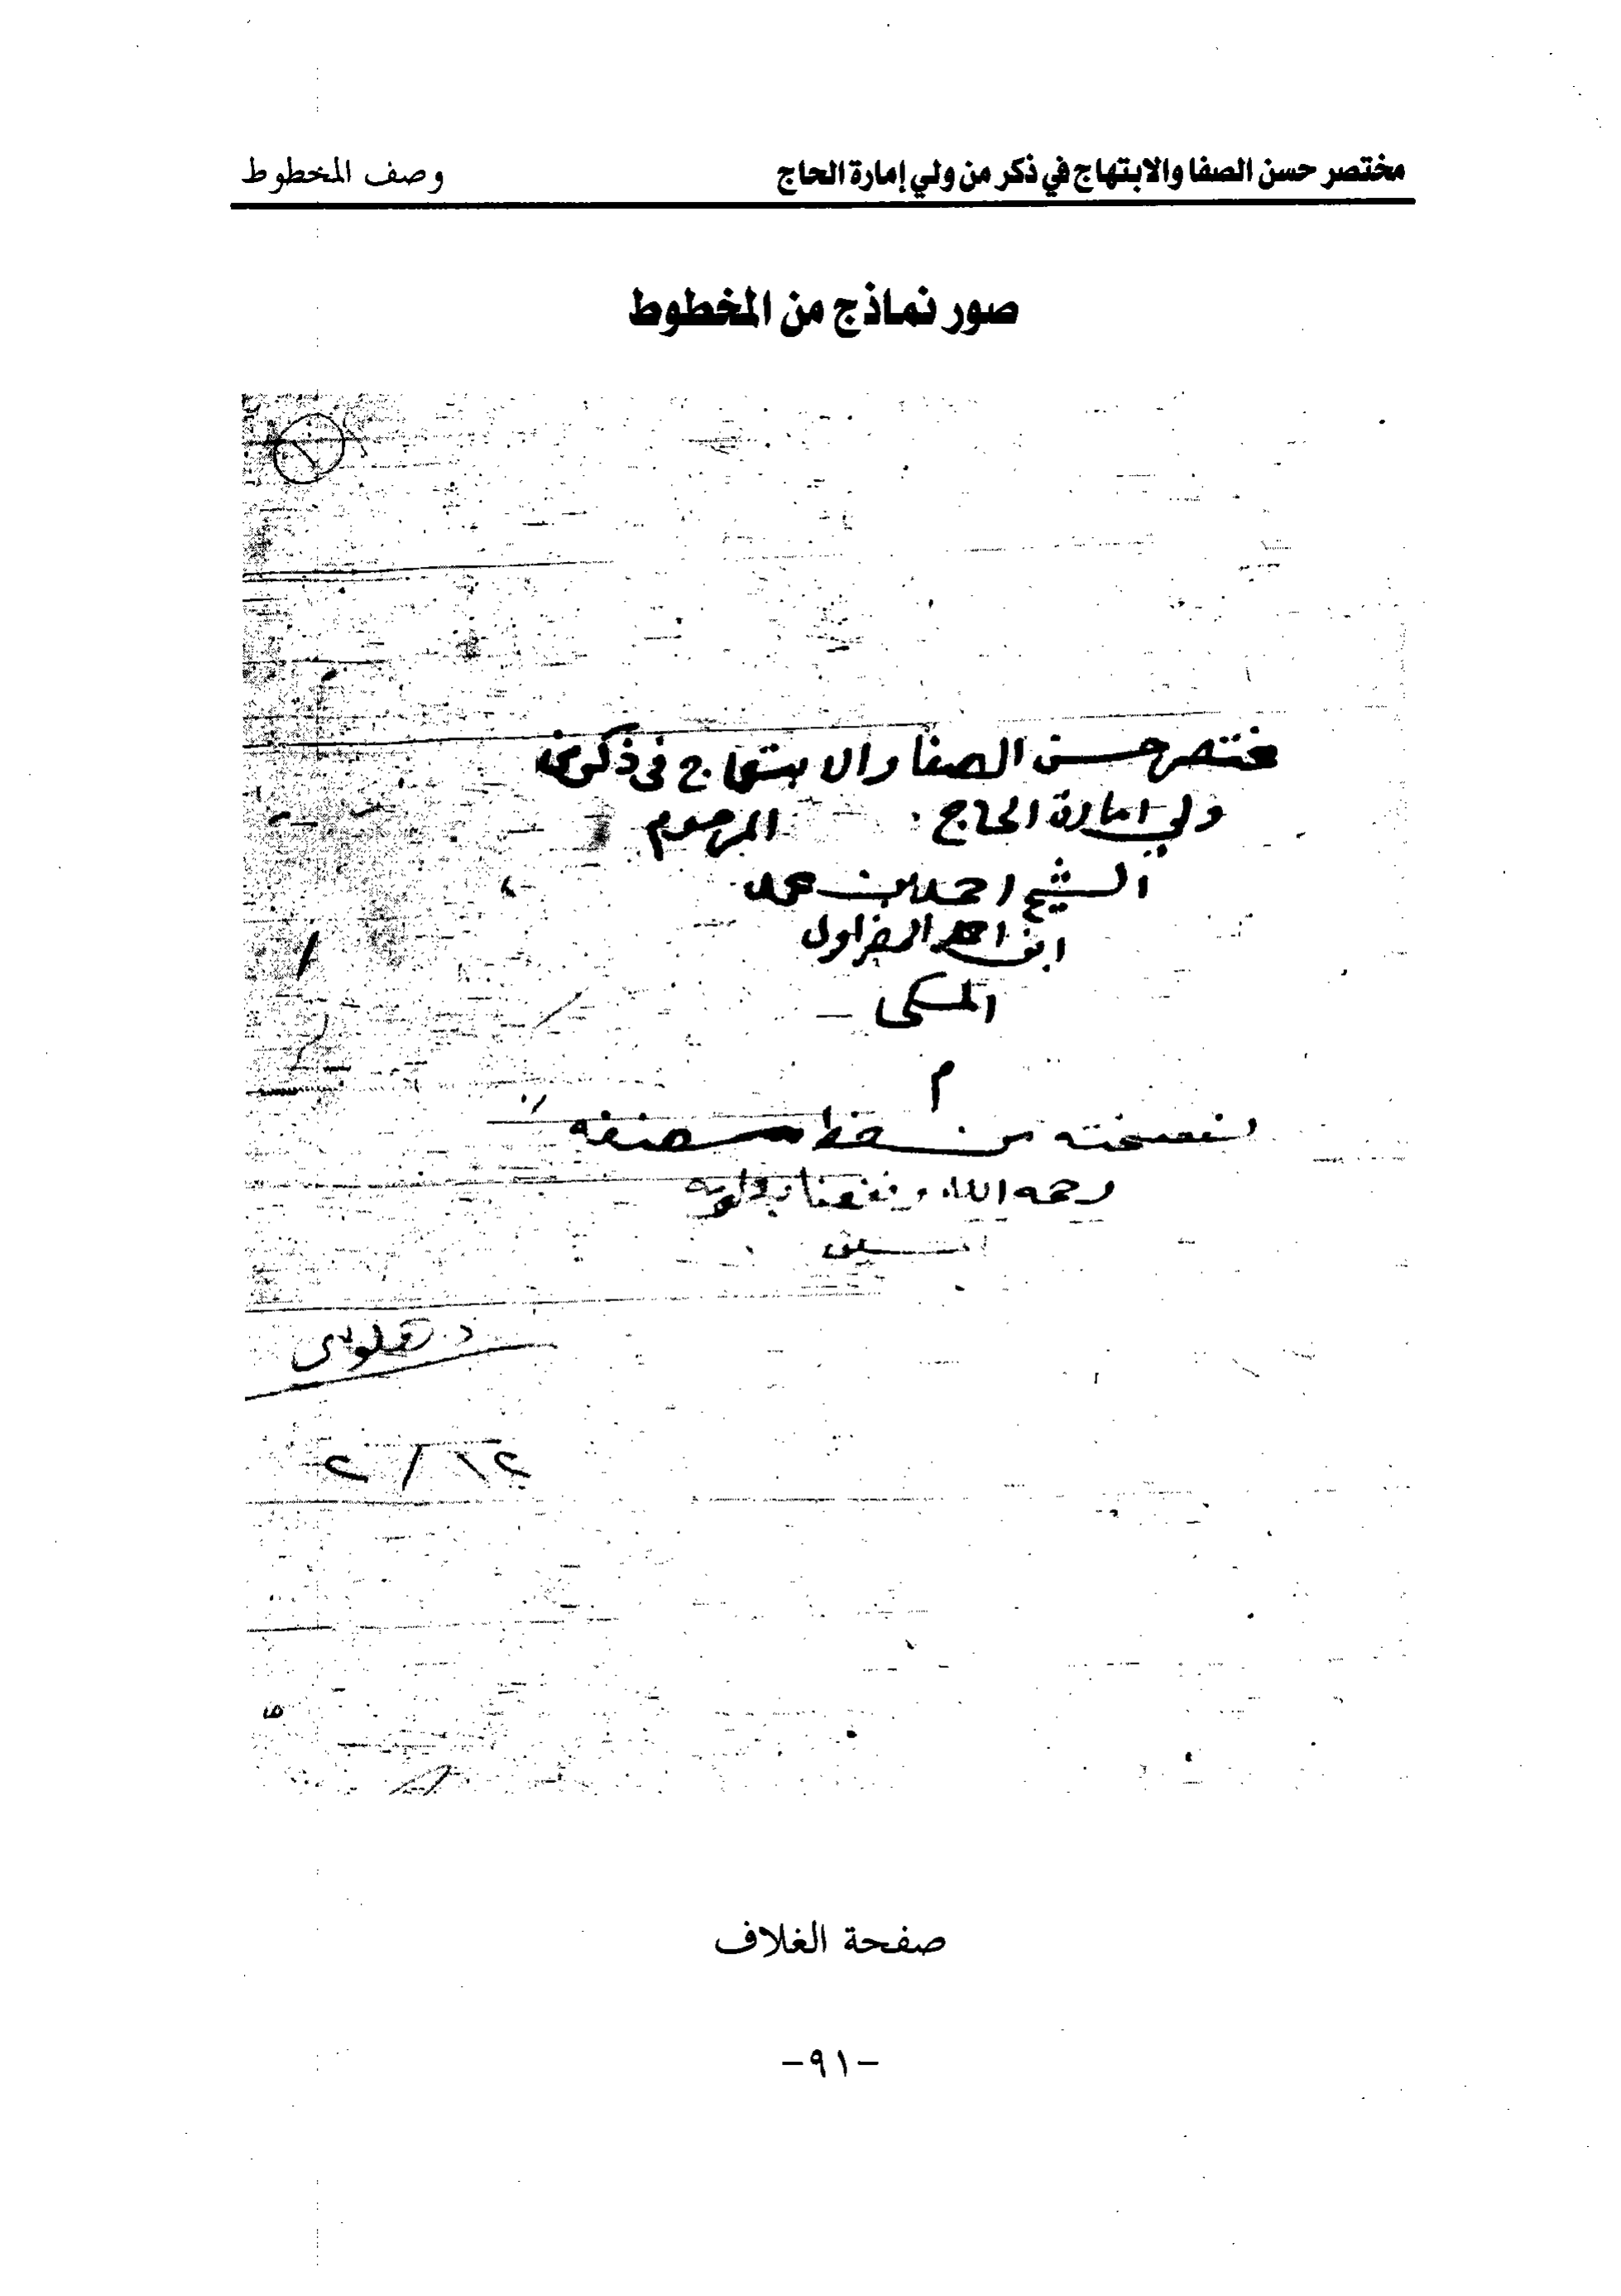 مختصر حسن الصفا والابتهاج في ذكر من ولي إمارة الحاج
وصف المخطوط
صور نماذج من المخطوط
١
مختصر حسن الصفا والابتهاج فى ذكر من
ولي امارة الحاج المرحوم
الشيخ احمد بن محمد
ابن احمد الحضراوى
المكى
م
نسخته من خط مصنفه
رحمه الله ونفعنا بعلومه
امين
صفحة الغلاف
-٩١-